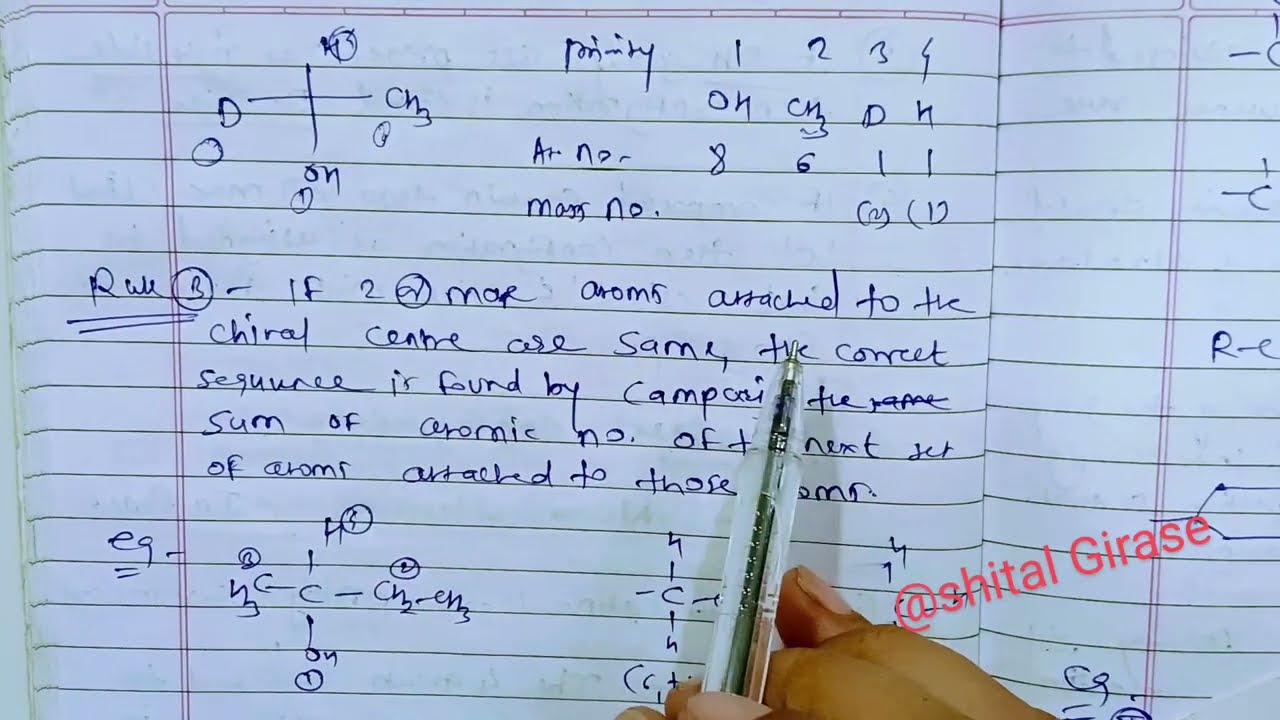 H④ priority 1 2 3 4
D CH3 OH CH3 D H
At no. 8 6 1 1
OH
① mass no. (2) (1)
Rule ③ - If 2 or more atoms attached to the
chiral centre are same, the correct
sequence is found by the same
sum of atomic no. of next set
of atoms attached to those
H④
eg - ③ ②
H3C - C - CH2-CH3 - C -
OH H
①
H
H
R-C
Eg
@shital Girase